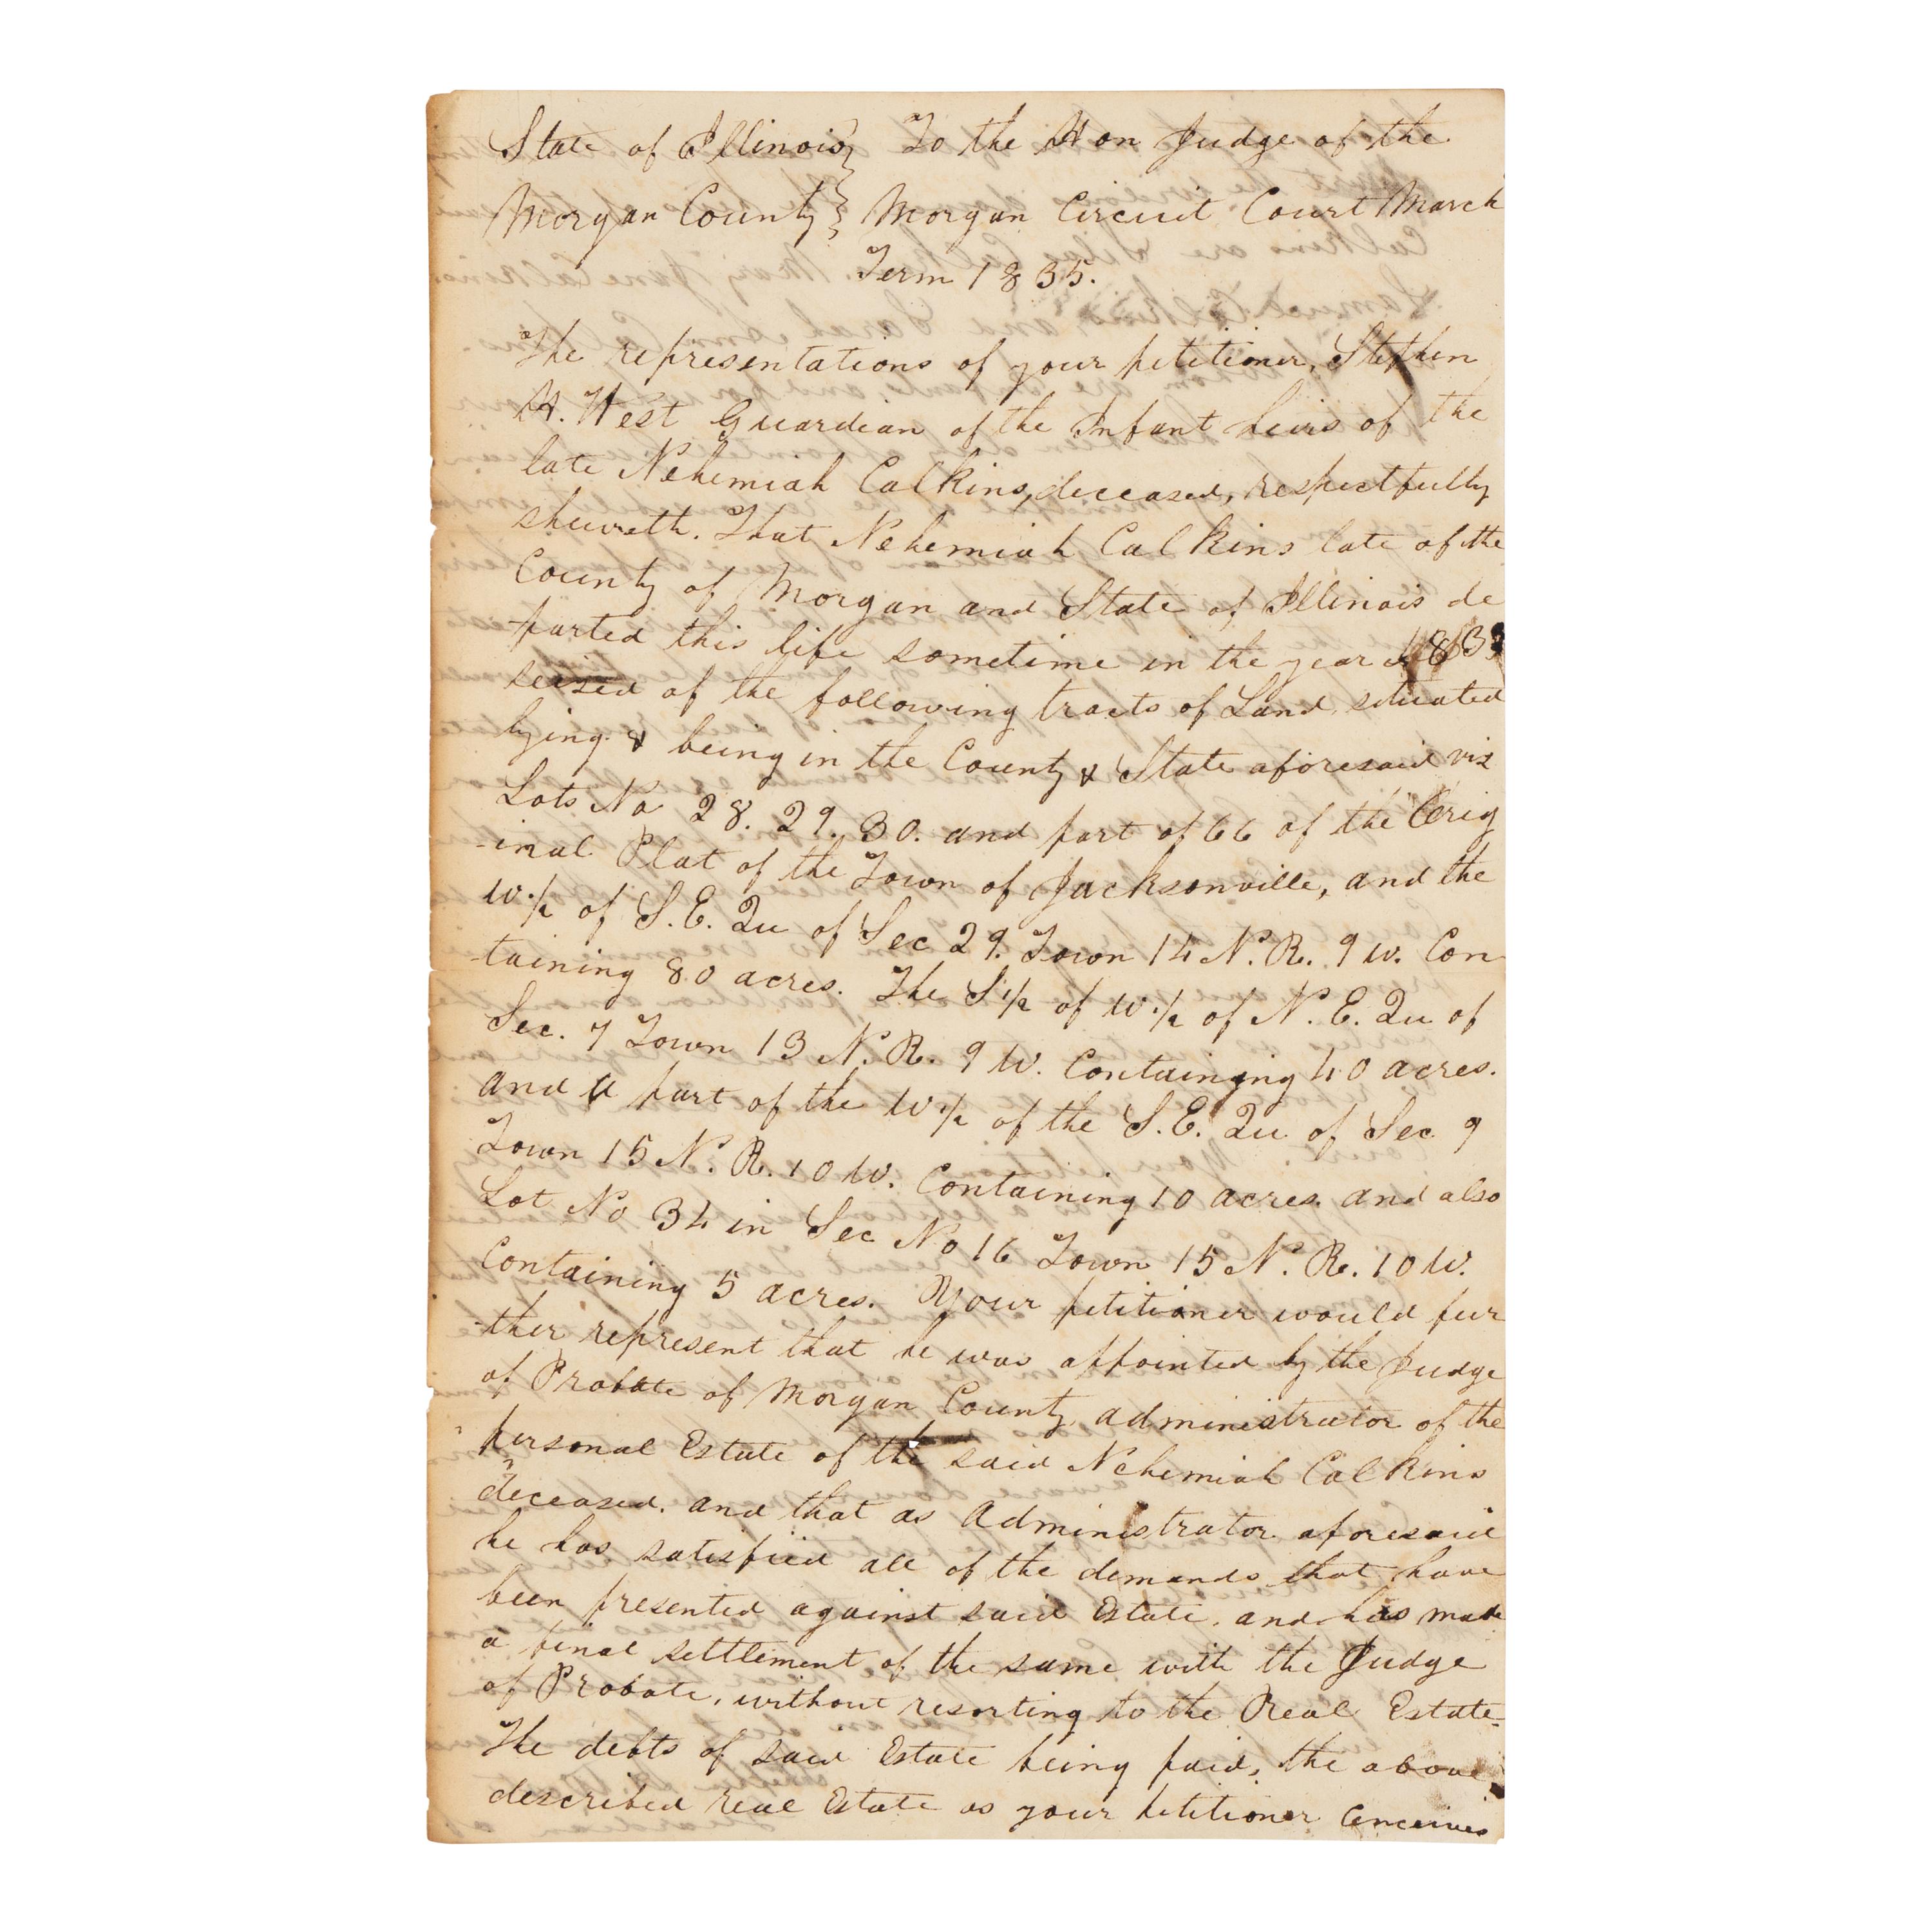 State of Illinois } To the Hon Judge of the
Morgan County } Morgan Circuit Court March
Term 1835.
The representations of your petitioner, Stephen
H. West Guardian of the Infant heirs of the
late Nehemiah Calkins, deceased, respectfully
sheweth. That Nehemiah Calkins late of the
County of Morgan and State of Illinois de
-parted this life sometime in the year 1833
seized of the following tracts of Land, situated
lying & being in the County & State aforesaid viz
Lots No 28. 29. 30. and part of 66 of the Orig
-inal Plat of the Town of Jacksonville, and the
W. 1/2 of S. E. Qu of Sec 29. Town 14 N. R. 9 W. Con
-taining 80 acres. The S 1/2 of W. 1/2 of N. E. Qu of
Sec. 7 Town 13 N. R. 9 W. Containing 40 acres.
and a part of the W. 1/2 of the S. E. Qu of Sec 9
Town 15 N. R. 10 W. Containing 10 acres. and also
Lot No 34 in Sec No 16 Town 15 N. R. 10 W.
Containing 5 acres. Your petitioner would fur
-ther represent that he was appointed by the Judge
of Probate of Morgan County, administrator of the
personal Estate of the said Nehemiah Calkins
deceased. and that as Administrator aforesaid
he has satisfied all of the demands that have
been presented against said Estate. and has made
a final settlement of the same with the Judge
of Probate, without resorting to the Real Estate.
The debts of said Estate being paid, the above
described real Estate as your petitioner Conceives